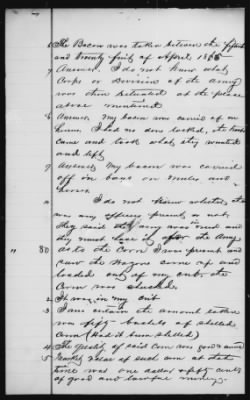 6 The Bacon was taken between the fifteenth
and twenty first of April 1865
7 Answer. I do not know what
Corps or Division of the Army
was then situated at the place
above mentioned
8 Answer. My bacon was carried off on
horses. I had no door locked, the troops
came and took what they wanted
and left
9 Answer My bacon was carried
off in bags on mules and
horses
I do not know whether there
was any officers present or not
They said the Army was in need and
they must have it for the Army
80 as to the Corn I was present and
saw the wagons come up and
loaded out of my crib the
Corn was shucked
2 It was in my crib
3 I am certain the amount taken
was fifty bushels of shelled
Corn (Had it been shelled)
4 The quality of said Corn was good & sound
5 Market value of such corn at that
time was one dollar & fifty cents
of good and lawful money